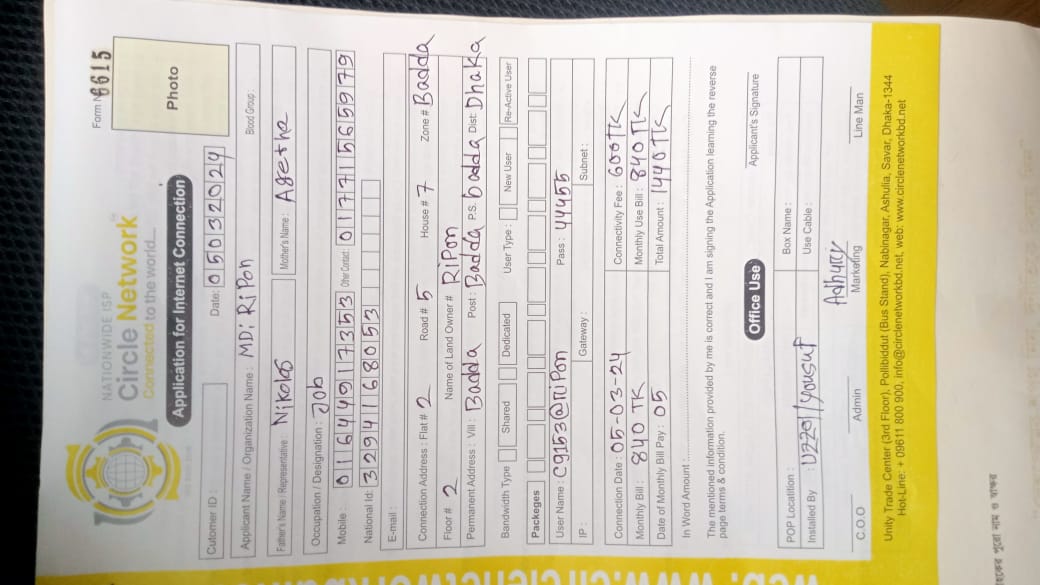 Form No 6615
NATIONWIDE ISP
Circle Network™
Connected to the world...
Photo
Application for Internet Connection
Cutomer ID : Date: 05032024
Applicant Name / Organization Name : MD: RiPon Blood Group :
Father's Name / Representative : Nikolas Mother's Name : Agetha
Occupation / Designation : Job
Mobile : 01649117353 Other Contact: 01771565979
National Id: 3294168053
E-mail :
Connection Address : Flat # 2 Road # 5 House # 7 Zone # Badda
Floor # 2 Name of Land Owner # RiPon
Permanent Address : Vill : Badda Post : Badda P.S. badda Dist: Dhaka
Bandwidth Type Shared Dedicated User Type : New User Re-Active User
Packeges
User Name : C9153@riPon Pass : 44455
IP : Gateway : Subnet :
Connection Date : 05-03-24 Connectivity Fee : 600TK
Monthly Bill : 840 TK Monthly Use Bill : 840 TK
Date of Monthly Bill Pay : 05 Total Amount : 1440TK
In Word Amount :
The mentioned information provided by me is correct and I am signing the Application learning the reverse
page terms & condition.
Applicant's Signature
Office Use
POP Locatition : Box Name :
Installed By : U2291/yousuf Use Cable :
C.O.O Admin Marketing Line Man
Unity Trade Center (3rd Floor), Pollibiddut (Bus Stand), Nabinagar, Ashulia, Savar, Dhaka-1344
Hot-Line: + 09611 800 900, info@circlenetworkbd.net, web: www.circlenetworkbd.net